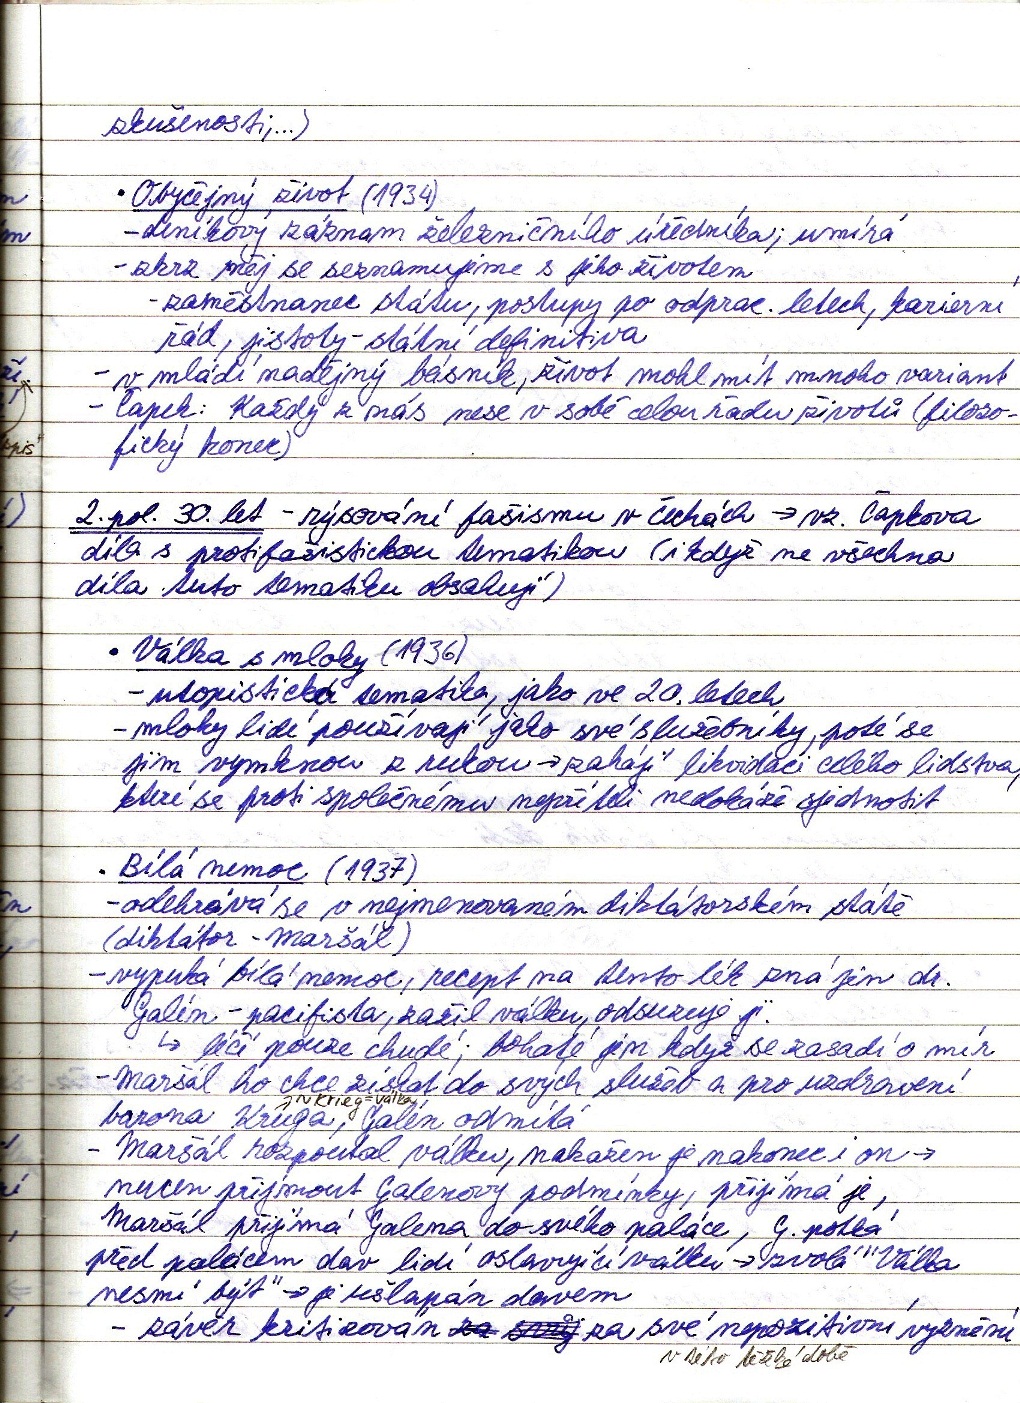 zkušenosti,...)
• Obyčejný život (1934)
- deníkový záznam železničního úředníka; umírá
- skrz něj se seznamujeme s jeho životem
- zaměstnanec státu, postupy po odprac. letech, karierní
řád, jistoty - státní definitiva
- v mládí nadějný básník, život mohl mít mnoho variant
- Čapek: Každý z nás nese v sobě celou řadu životů (filozo-
fický konec)
2. pol. 30. let - rýsování fašismu v Čechách → vz. Čapkova
díla s protifašistickou tematikou (i když ne všechna
díla tuto tematiku obsahují)
• Válka s mloky (1936)
- utopistická tematika, jako ve 20. letech
- mloky lidé používají jako své služebníky, poté se
jim vymknou z rukou → zahájí likvidaci celého lidstva,
které se proti společnému nepříteli nedokáže sjednotit
• Bílá nemoc (1937)
- odehrává se v nejmenovaném diktátorském státě
(diktátor - Maršál)
- vypuká bílá nemoc, recept na tento lék zná jen dr.
Galén - pacifista, zažil válku, odsuzuje ji.
↳ léčí pouze chudé; bohaté jen když se zasadí o mír
- Maršál ho chce získat do svých služeb a pro uzdravení
~ krieg = válka
barona Krüga, Galén odmítá
- Maršál rozpoutal válku, nakažen je nakonec i on →
nucen přijmout Galenovy podmínky, přijímá je,
Maršál přijímá Galena do svého paláce, G. potká
před palácem dav lidí oslavující válku → zvolá "Válka
nesmí být" → je ušlapán davem
- závěr kritizován za svůj za své nepozitivní vyznění
v této těžké době